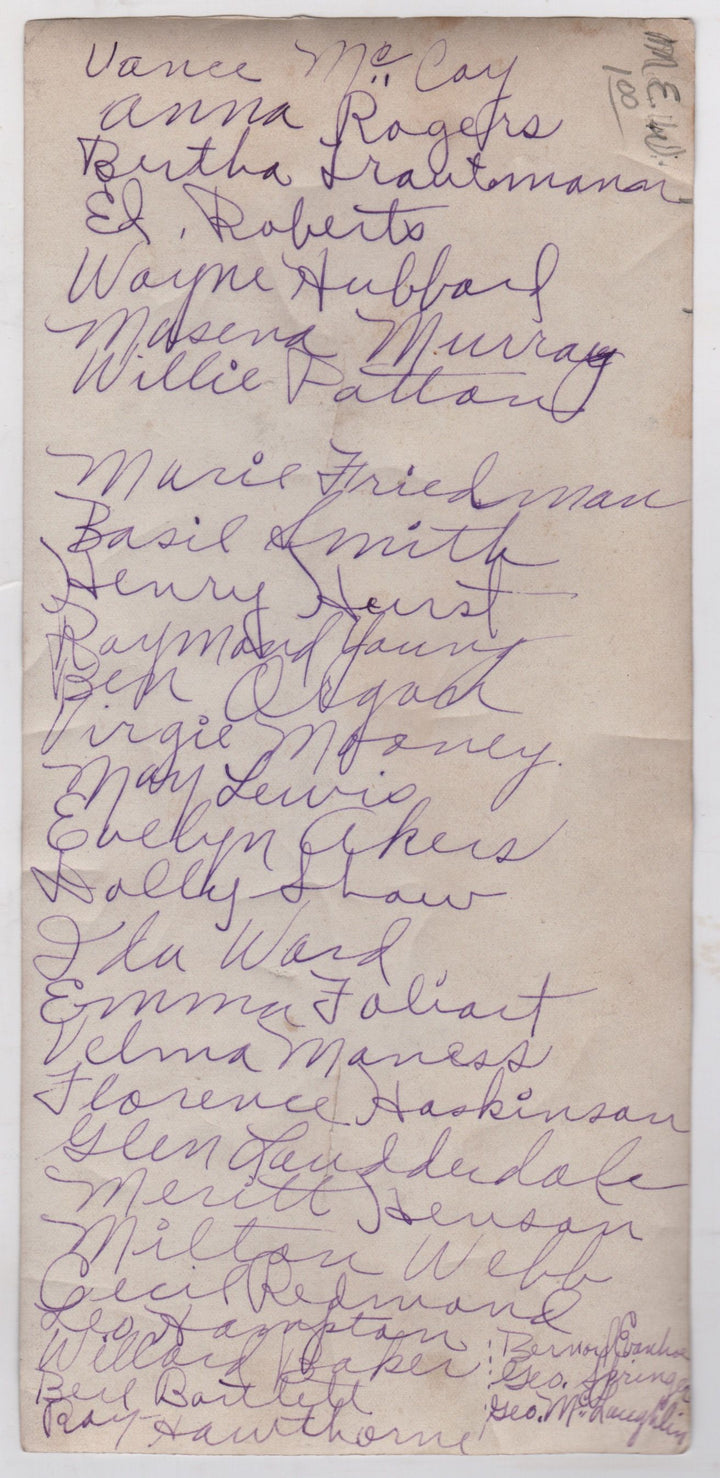 Vance McCoy
Anna Rogers
Bertha Trautmann
Ed. Roberts
Wayne Hubbard
Masena Murray
Willie Patton
Marie Friedman
Basil Smith
Henry Hurst
Raymond Young
Ben
Virgie Mooney.
May Lewis
Evelyn Akers
Holly Shaw
Ida Ward
Emma Foliart
Velma Maness
Florence Haskinson
Glen Laudderdale
Meritt Henson
Milton Webb
Cecil Redmond
Leo Hampton
Willard Baker
Berl Bartlett
Ray Hawthorne
Evanhoe
Geo. Springer
Geo. McLaughlin
M.E.
1.00